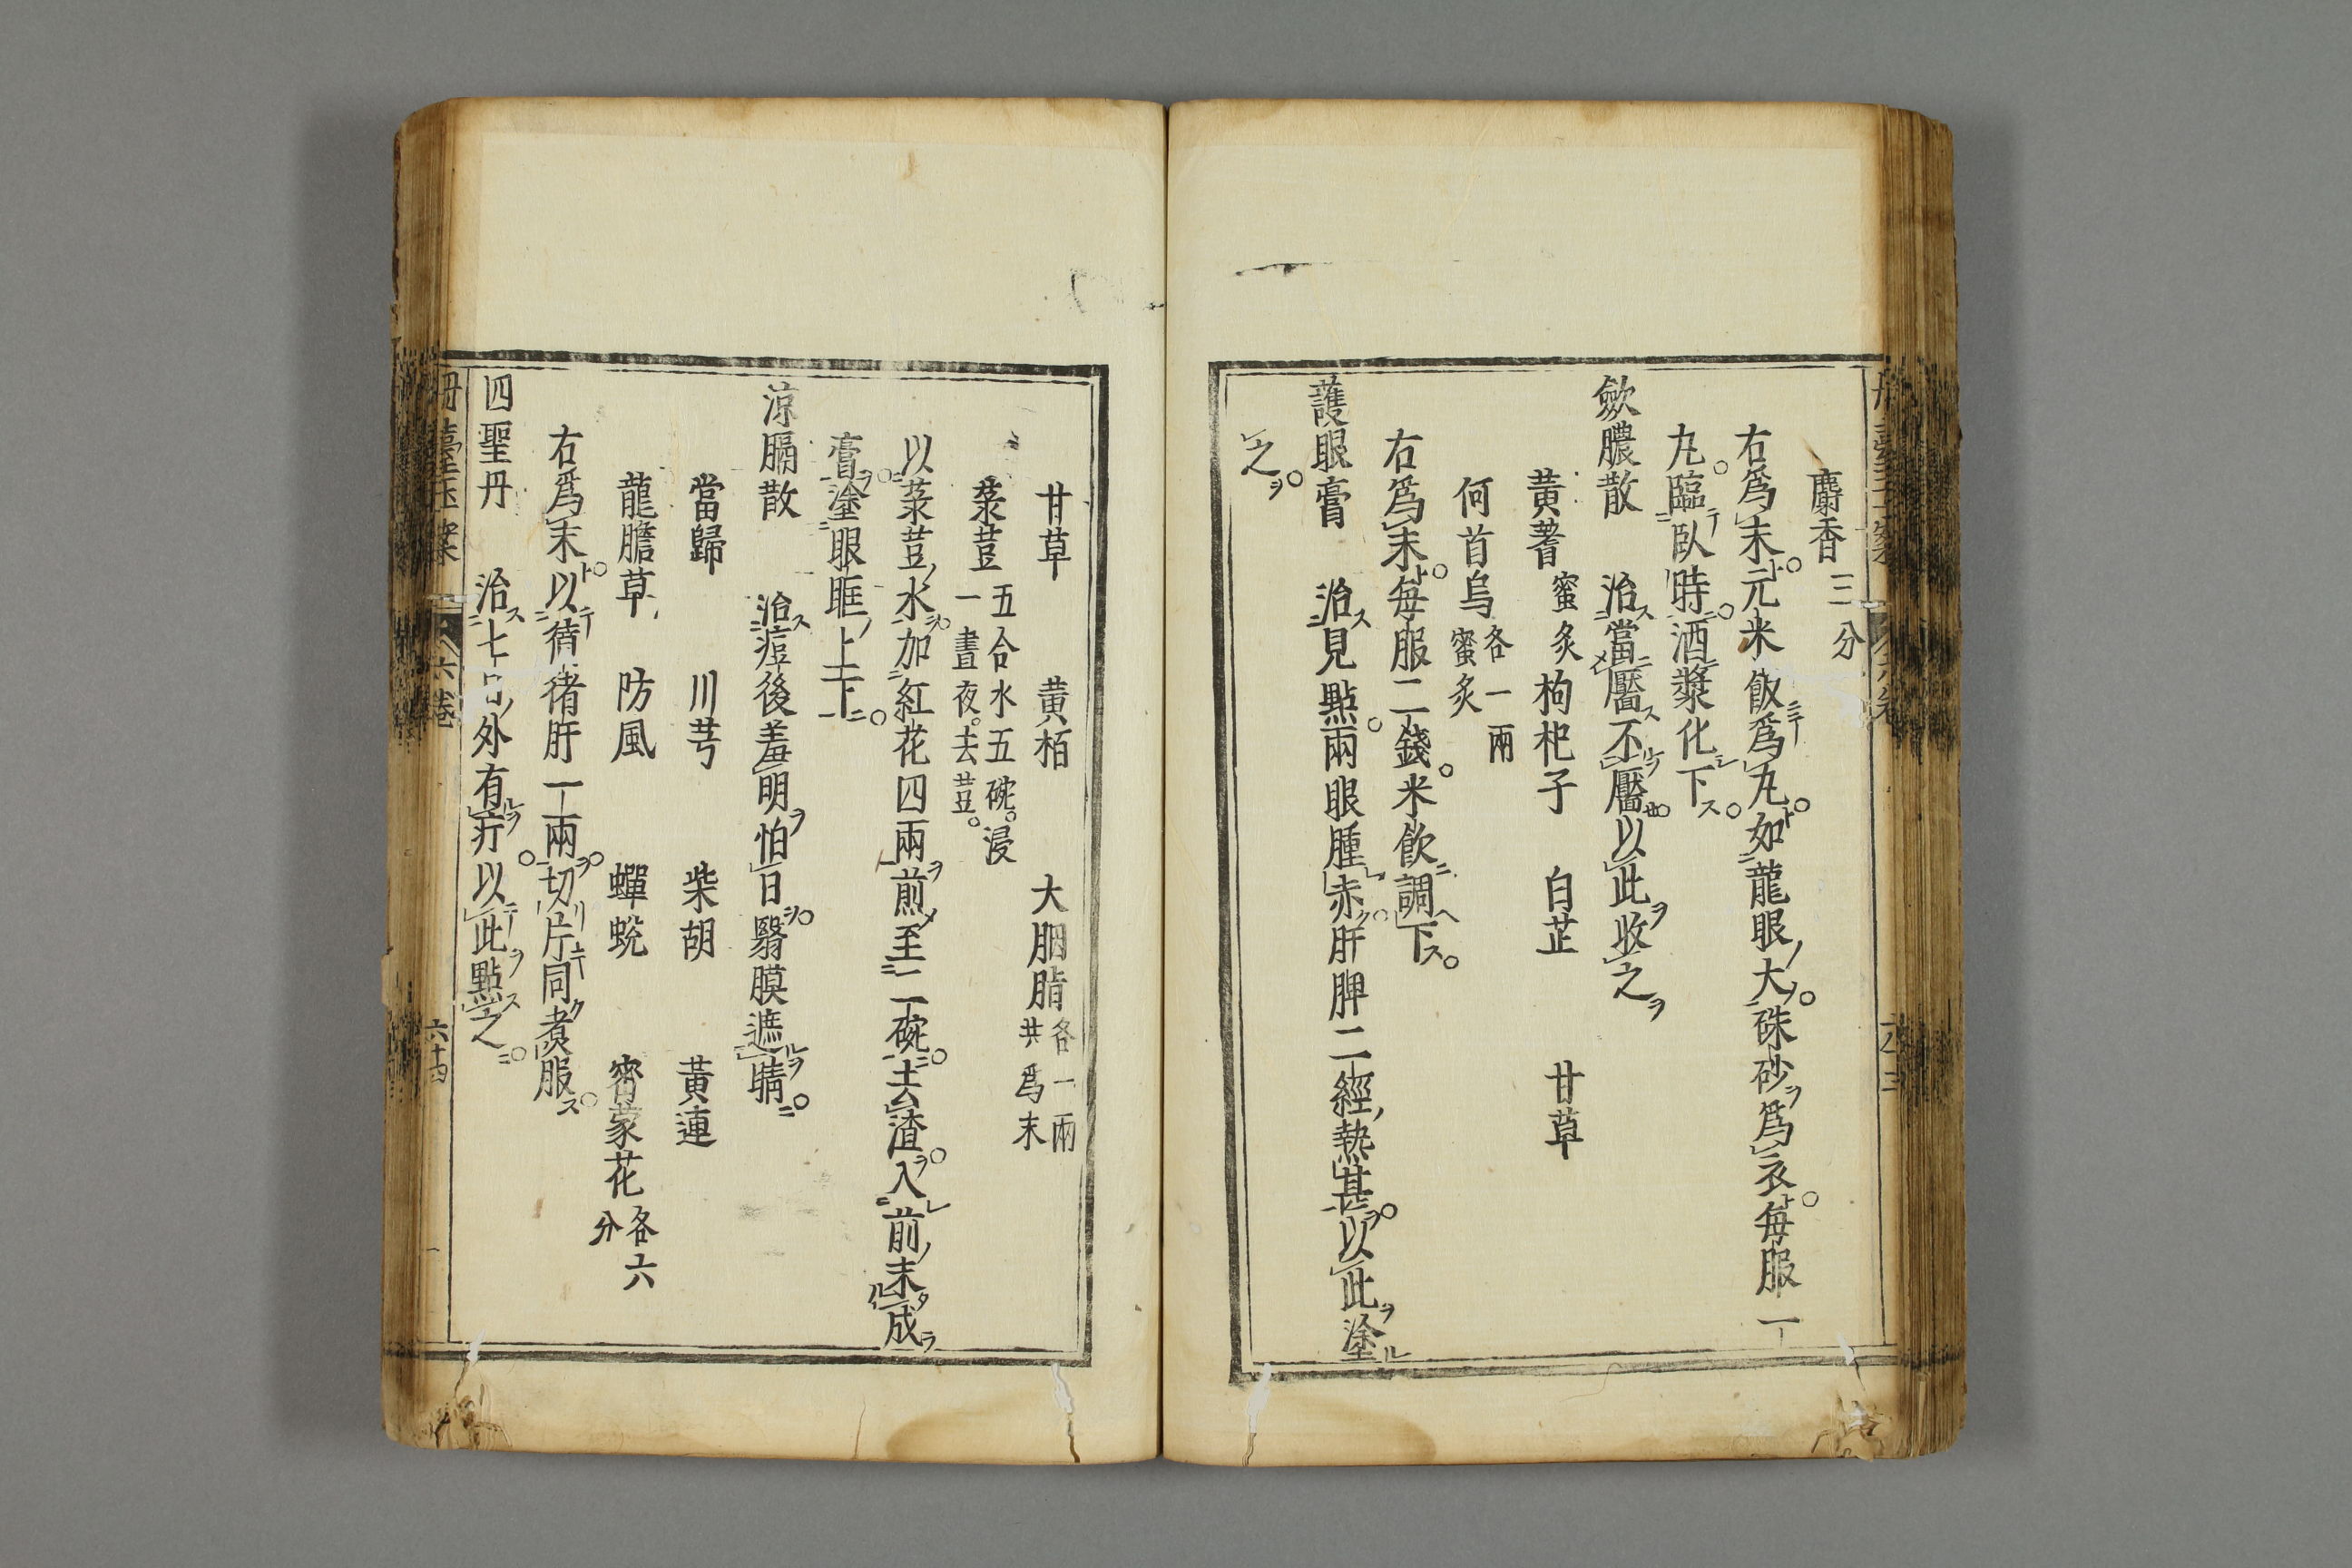 麝香三分
右爲末元米飯爲丸如龍眼大硃砂爲衣每服一
丸臨臥時酒漿化下
歛膿散 治當靨不靨以此收之
黄蓍蜜炙 枸杞子 白芷 甘草
何首烏各一兩蜜炙
右爲末每服二錢米飲調下
護眼膏 治見點兩眼腫赤肝脾二經熱甚以此塗
之
甘草 黄栢 大胭脂各一兩共爲末
菉荳五合水五碗浸一晝夜去荳
以菉荳水加紅花四兩煎至二碗去渣入前末成
膏塗眼眶上下
凉膈散 治痘後羞明怕日翳膜遮睛
當歸 川芎 柴胡 黄連
龍膽草 防風 蟬蛻 宻蒙花各六分
右爲末以㹠猪肝一兩切片同煮服
四聖丹 治七日外有疔以此點之
丹臺玉案 六卷 六十四